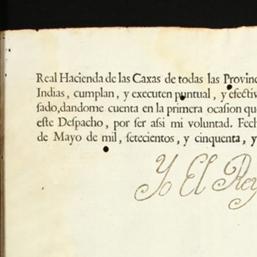 Real Hacienda de las Caxas de todas las Provin
Indias, cumplan, y executen puntual, y efectiv
sado, dandome cuenta en la primera ocasion que
este Despacho, por ser asi mi voluntad. Fech
de Mayo de mil, setecientos, y cinquenta, y
Yo El Rey